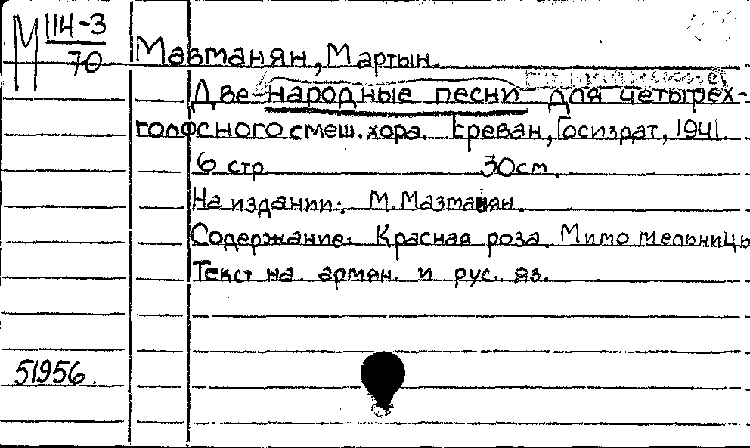 М 114-3
70
Мазманян, Мартын.
Две народные песни для четырех-
голосного смеш. хора. Ереван, Госиздат, 1941.
6 стр. 30см.
На издании: М. Мазманян.
Содержание: Красная роза. Мимо мельницы
Текст на армян. и рус. яз.
51956.